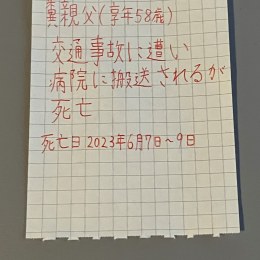 親父(享年58歳)
交通事故に遭い
病院に搬送されるが
死亡
死亡日 2023年6月7日~9日